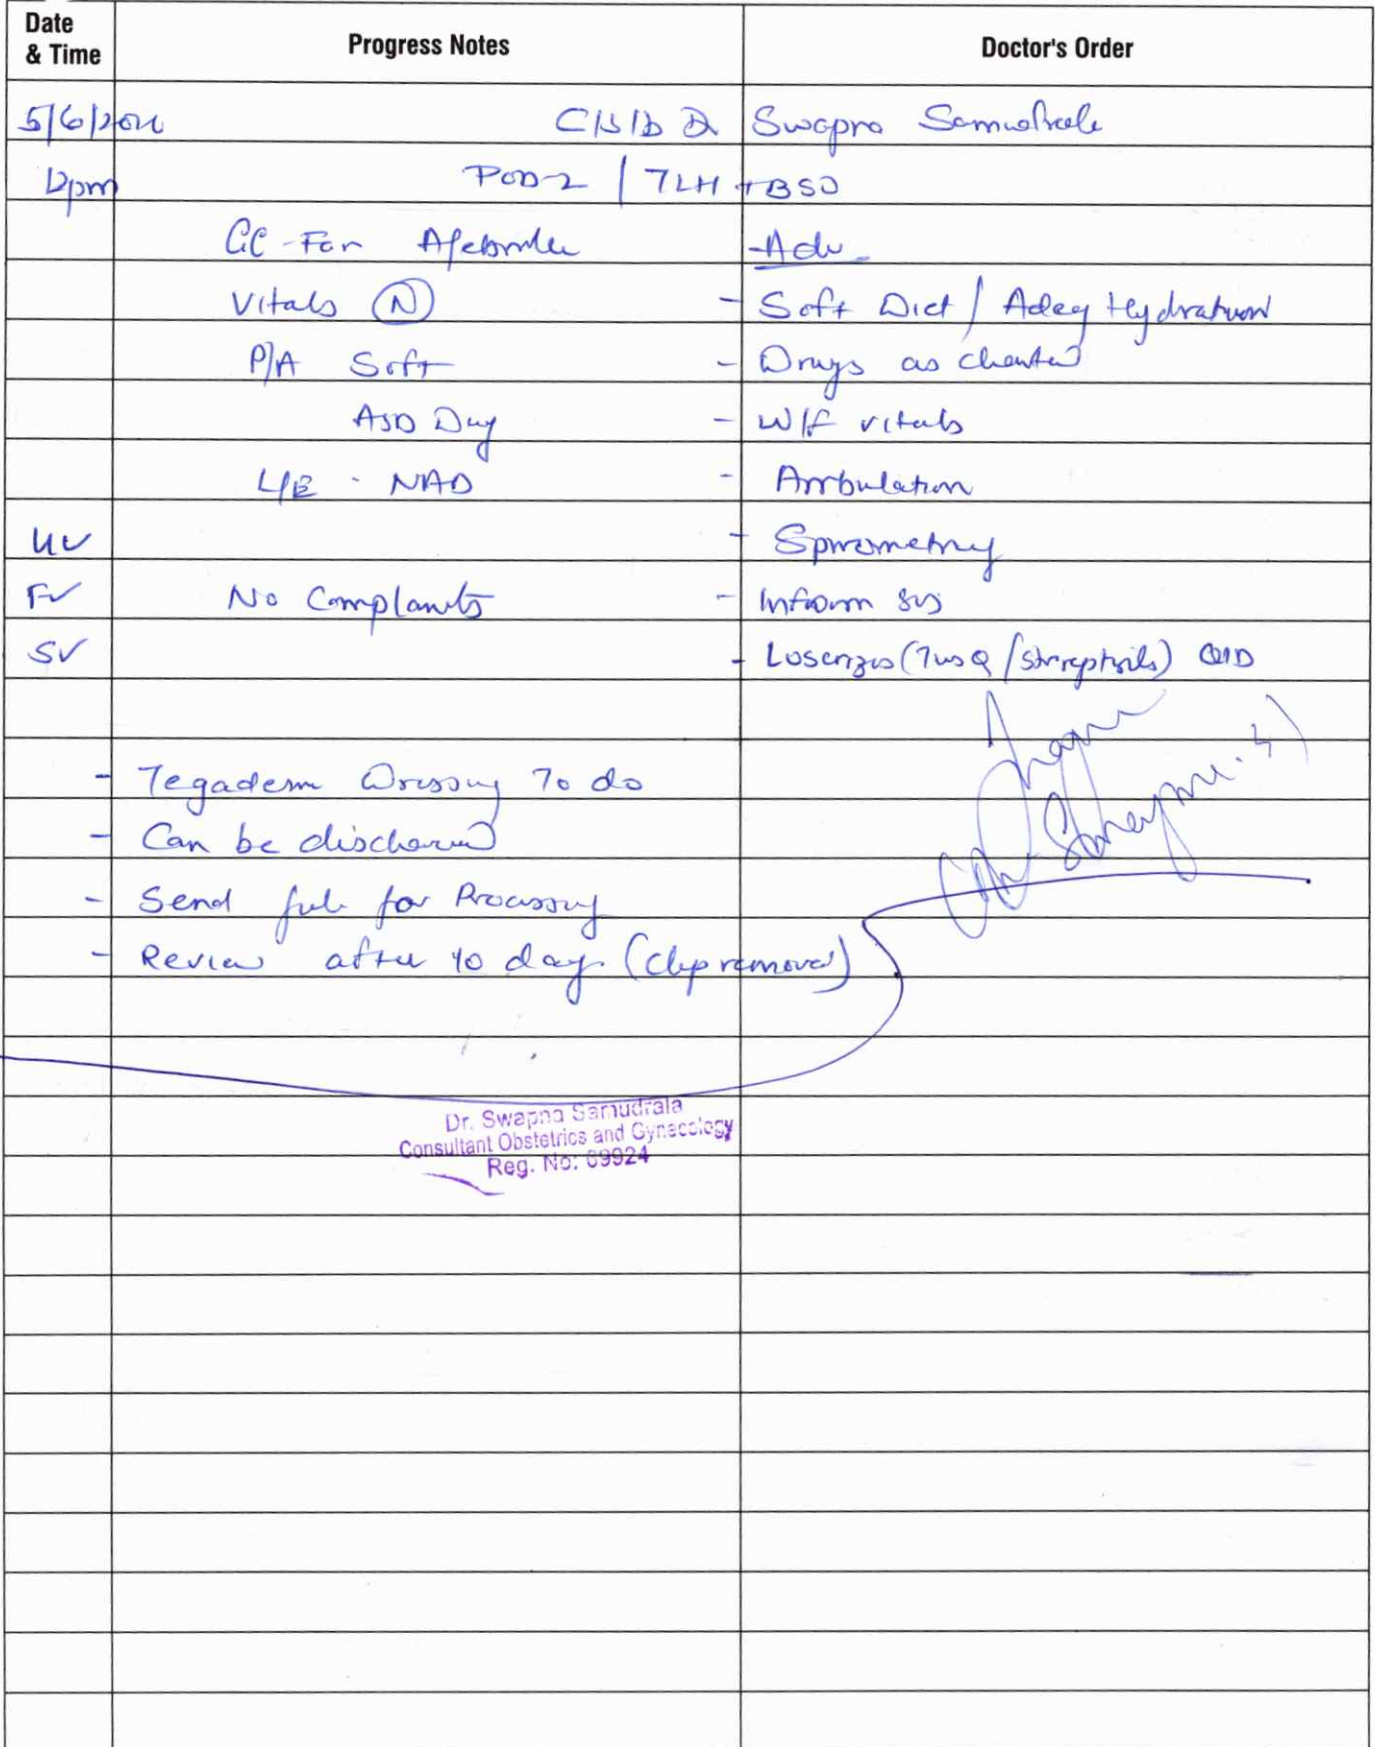 Date & Time Progress Notes Doctor's Order
5/6/20 C/S/b Dr Swapna Samudrala
12pm POD-2 / TLH + BSO
GC-Fair Afebrile Adv
Vitals (N) - Soft Diet / Adeq Hydration
P/A Soft - Drugs as charted
ASD Dry - W/f vitals
L/E - NAD - Ambulation
UV - Spirometry
FV No Complaints - Inform SOS
SV - Losenzes (TusQ / streptsils) QID
- Tegaderm Dressing To do
- Can be discharged
- Send file for Processing
- Review after 10 days (clip removal)
Dr. Swapna Samudrala
Consultant Obstetrics and Gynaecology
Reg. No: 69924